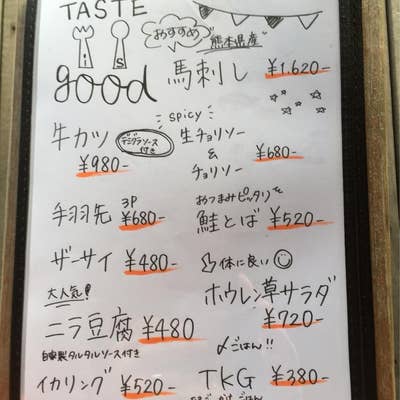 TASTE
is
good
おすすめ
"熊本県産"
馬刺し ¥1.620-
牛カツ
デミグラソース付き
¥980-
spicy
生チョリソー
&
チョリソー
¥680-
手羽先 3P ¥680-
おつまみピッタリ
鮭とば ¥520-
ザーサイ ¥480-
体に良い
ホウレン草サラダ
¥720-
大人気!
ニラ豆腐 ¥480
自家製タルタルソース付き
イカリング ¥520-
〆ごはん!!
TKG ¥380-
たまごかけごはん